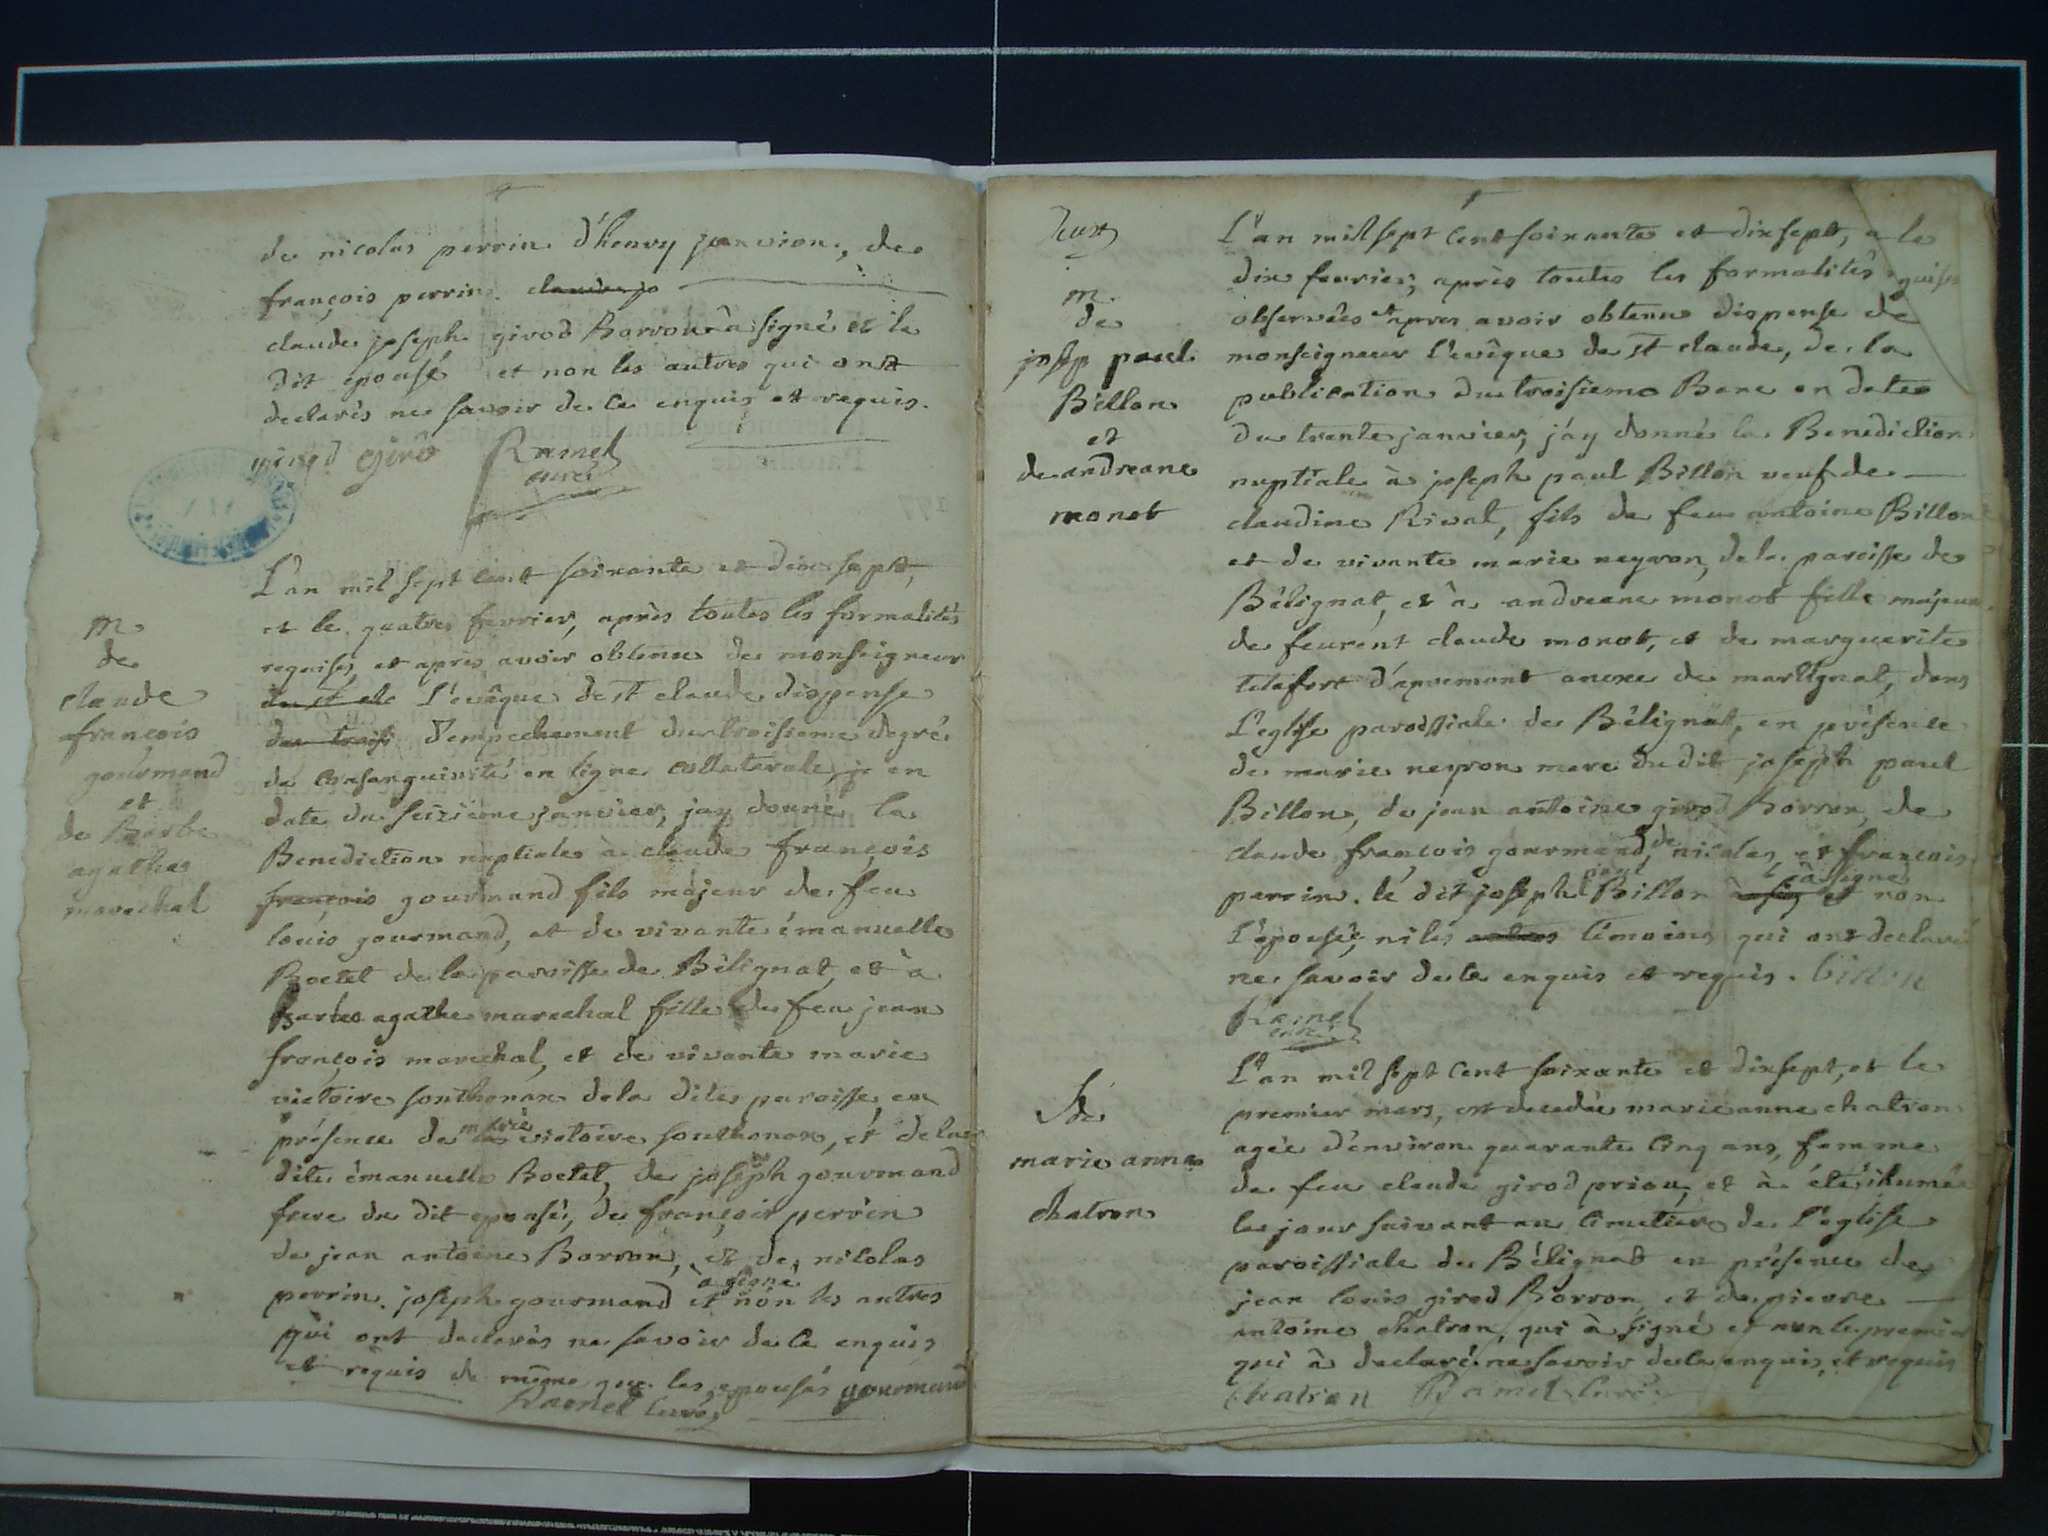 de nicolas perrin d'henry janvion, de
françois perrin. claude jo
claude joseph girod Borron à signé et le
dit épousé et non les autres qui ont
declarés ne savoir de ce enquis et requis.
girod giro Ramel
curé
m.
de
claude
françois
gourmand
et
de Barbe
agathe
marechal
L'an mil sept cent soixante et dix sept,
et le quatre fevrier, après toutes les formalités
requises, et après avoir obtenu de monseigneur
de st cla L'evêque de st claude dispense
du troisi d'empechement du troisieme degré
de consanguinité en ligne collaterale, en
date du seizieme janvier, jay donné la
Benediction nuptiale à claude françois
françois gourmand fils majeur de feu
loüis gourmand, et de vivante émanuelle
Boetet de la paroisse de Bélignat, et à
Barbe agathe marechal fille de feu jean
françois marechal, et de vivante marie
victoire sonthonax de la dite paroisse, en
présence de marie victoire sonthonax, et de la
dite émanuelle Boetet, de joseph gourmand
frere du dit epousé, de françois perrin
de jean antoine Borron, et de nicolas
perrin. joseph gourmand à signé et non les autres
qui ont declarés ne savoir de ce enquis
et requis de même que les epousés gourmand
Ramel curé
deux
m.
de
josep paul
Billon
et
de andreane
monot
L'an mil sept cent soixante et dix sept, et le
dix fevrier, après toutes les formalités requises
observées et apres avoir obtenu dispense de
monseigneur l'evêque de st claude, de la
publication du troisieme Banc en date
du trente janvier, j'ay donné la Benediction
nuptiale à joseph paul Billon veuf de
claudine Rivat, fils de feu antoine Billon
et de vivante marie neyron, de la paroisse de
Bélignat, et à andreane monot fille majeure
de feurent claude monot, et de marguerite
telafort d'apremont anexe de martignat, dans
L'eglise paroissiale de Bélignat, en présence
de marie neyron mere du dit joseph paul
Billon, de jean antoine girod Borron, de
claude françois gourmand, de nicolas, et françois
perrin. le dit joseph paul Billon à sig et à signé non
L'épousée, ni les autres témoins qui ont declaré
ne savoir de ce enquis et requis. billon
Ramel
curé
S.
de
marie anne
chatron
L'an mil sept cent soixante et dix sept, et le
premier mars, est decedée marie anne chatron
agée d'environ quarante cinq ans, femme
de feu claude girod priou, et à été inhumée
le jour suivant au cimetiere de l'eglise
paroissiale de Bélignat en présence de
jean louis girod Borron et de pierre
antoine chatron, qui à signé et non le premier
qui à declaré ne savoir de ce enquis et requis
chatron Ramel curé